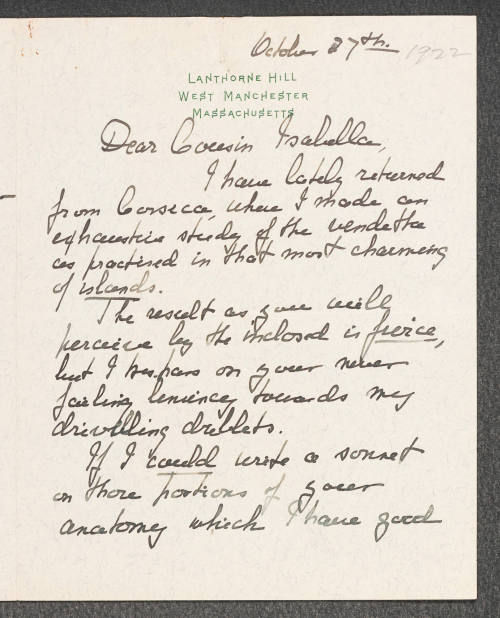 October 27th. 1922
LANTHORNE HILL
WEST MANCHESTER
MASSACHUSETTS
Dear Cousin Isabella,
I have lately returned
from Corsica, where I made an
exhaustive study of the vendetta
as practised in that most charming
of islands.
The result as you will
perceive by the inclosed is fierce,
but I trespass on your never
failing leniency towards my
drivelling driblets.
If I could write a sonnet
on those portions of your
anatomy which I have good